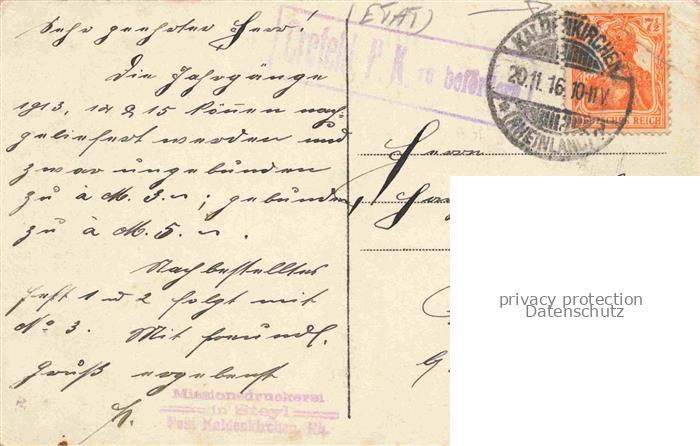 Sehr geehrter Herr!
Die Jahrgänge
1913, 14 & 15 können nach-
geliefert werden und
zwar ungebunden
zu à M. 3.~; gebunden
zu à M. 5.~.
Nachbestelltes
Heft 1 u 2 folgt mit
No 3. Mit freundl.
Gruß ergebenst
H.
Missionsdruckerei
in Steyl
Post Kaldenkirchen, Rh.
(ETAT)
Crefeld P. K. zu befördern
KALDENKIRCHEN
20.11.16.10-11V
(RHEINLAND)
7½
DEUTSCHES REICH
Herrn
privacy protection
Datenschutz